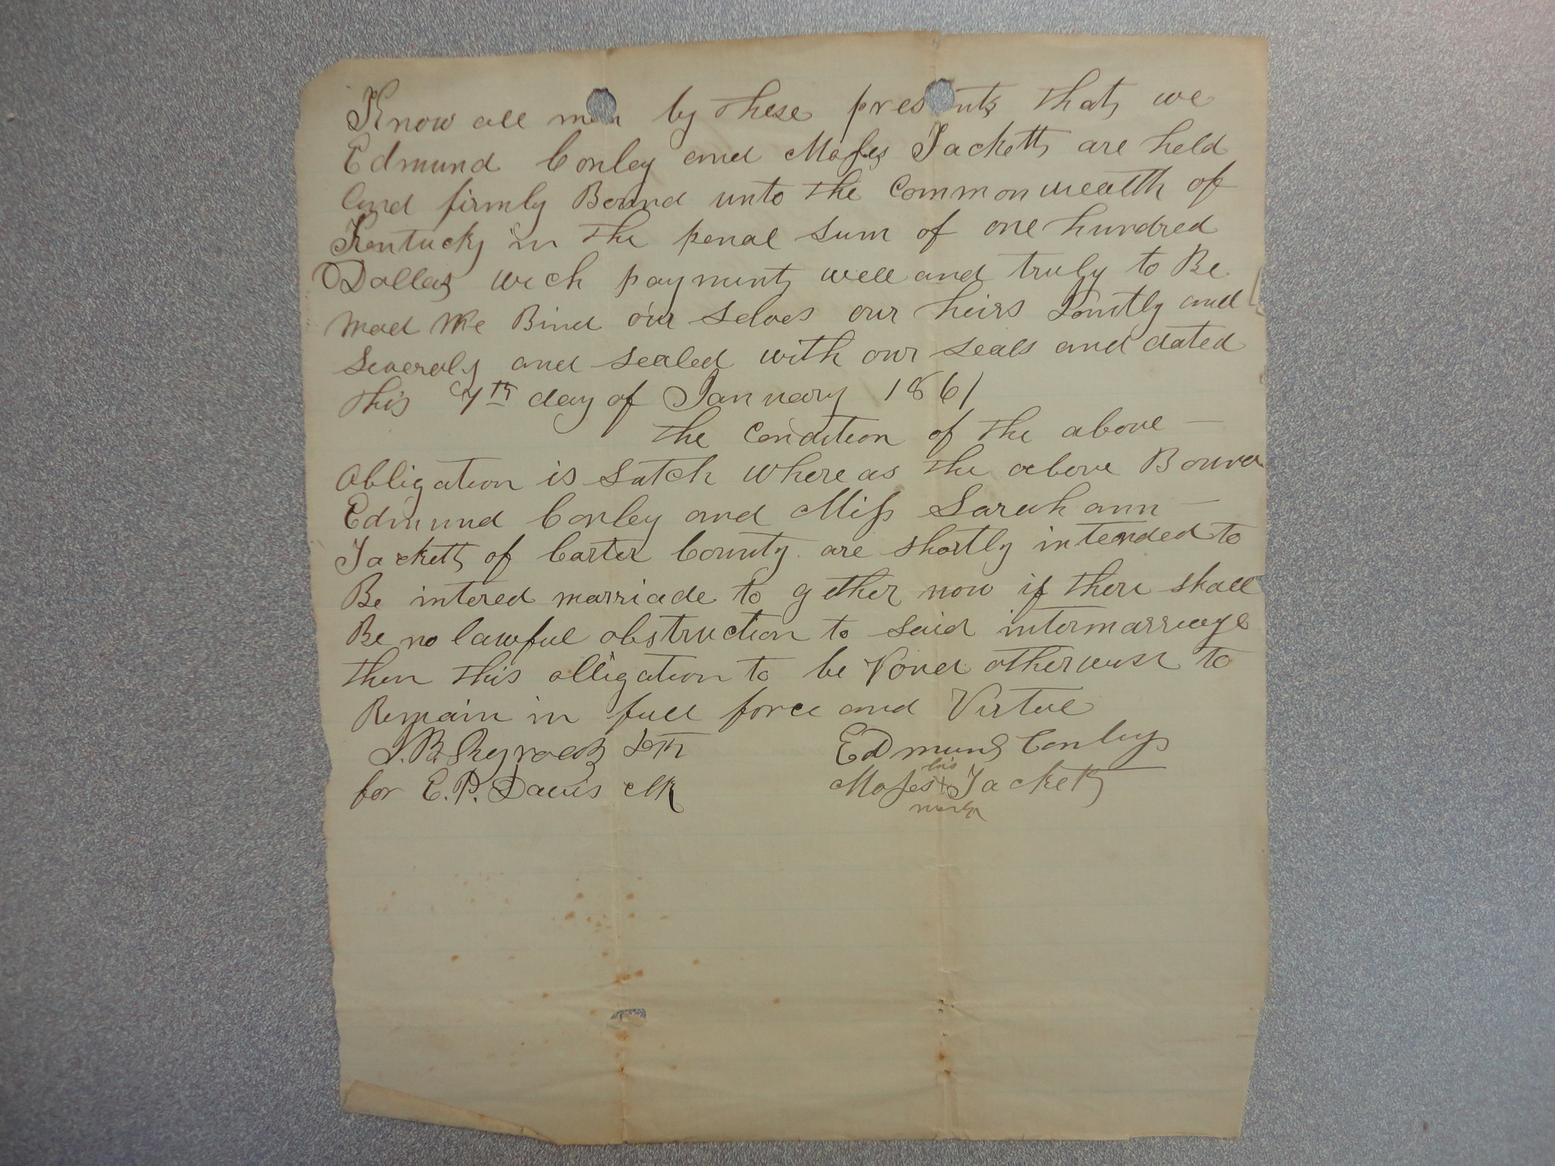 Know all men by these presents that we
Edmund Conley and Moses Jackett are held
and firmly Bound unto the Commonwealth of
Kentucky in the penal sum of one hundred
Dollas wich payment well and truly to Be
mad We Bind our selves our heirs Jointly and
severaly and sealed with our seals and dated
this 7th day of January 1861
the Condition of the above
obligation is sutch where as the above Bound
Edmund Conley and Miss Sarah ann
Jackett of Carter County are shortly intended to
Be intered marriade to gether now if there shall
Be no lawful obstruction to said intermarriage
then this obligation to be Void otherwise to
Remain in full force and Virtue
J.B. Reynolds
for E.P. Davis clk
Edmund Conley
his
Moses + Jackett
mark